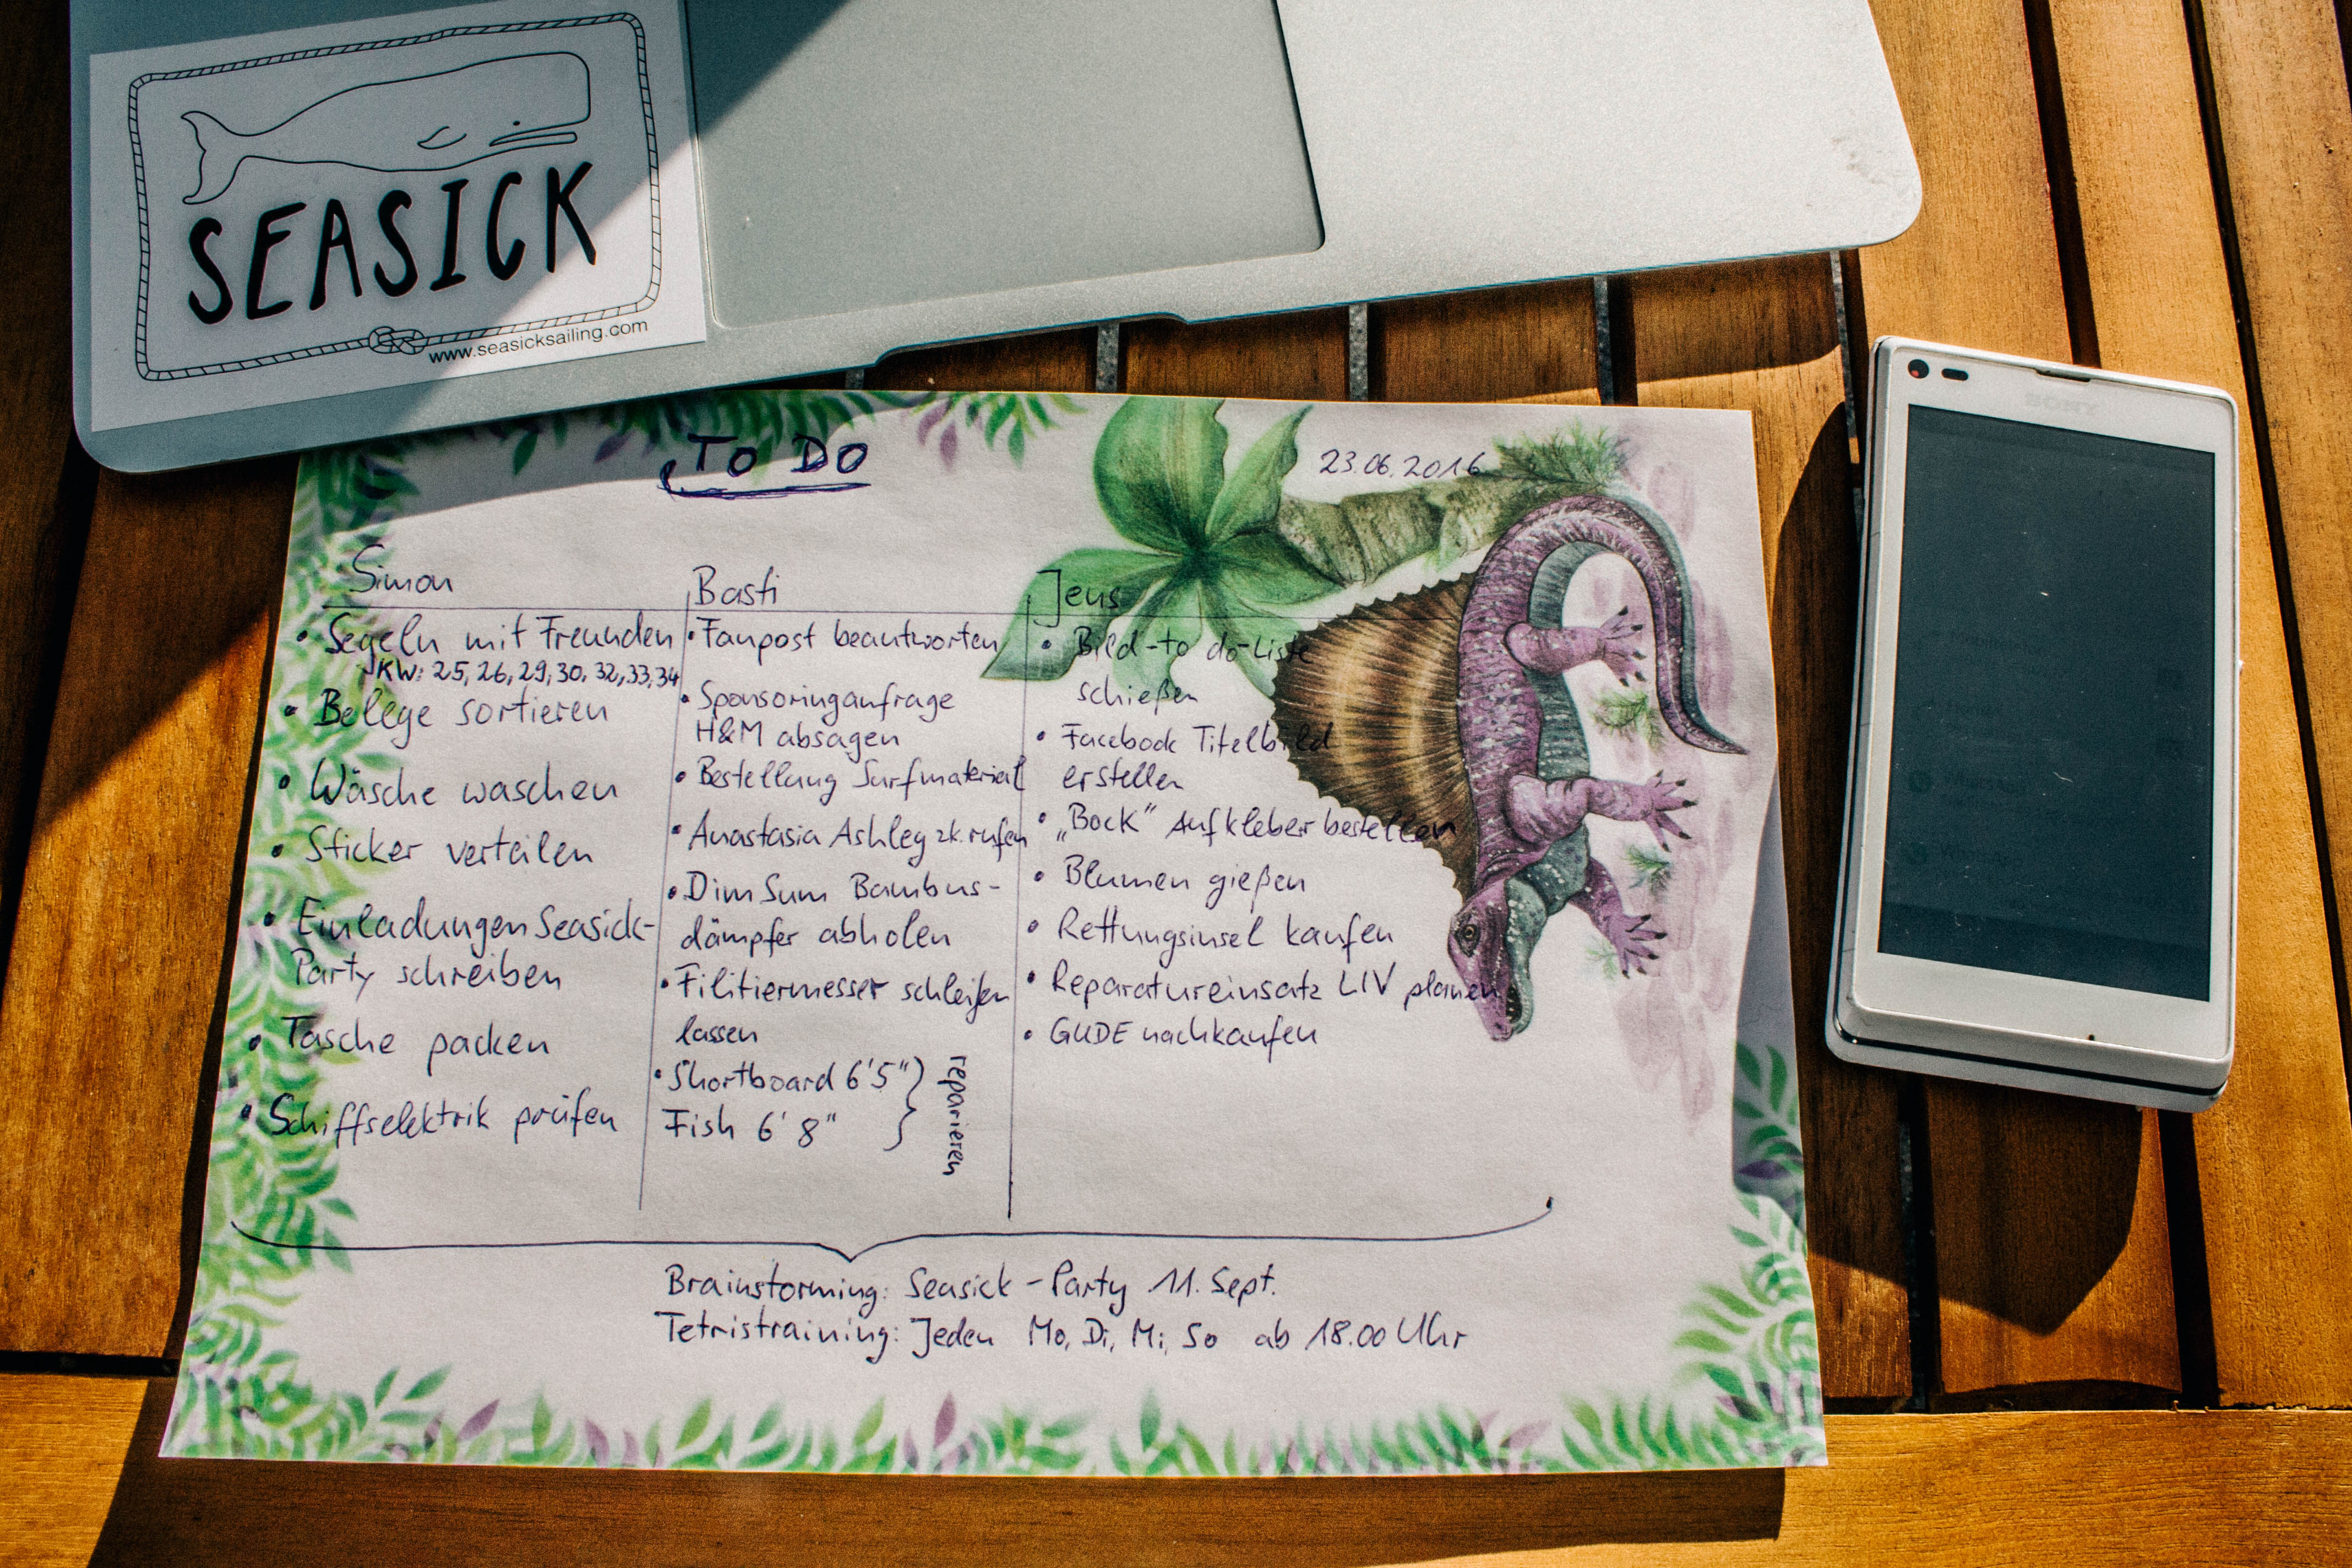 SEASICK
www.seasicksailing.com
SONY
TO DO
23.06.2016
Simon
• Segeln mit Freunden
KW: 25, 26, 29, 30, 32, 33, 34
• Belege sortieren
• Wäsche waschen
• Sticker verteilen
• Einladungen Seasick-
Party schreiben
• Tasche packen
• Schiffselektrik prüfen
Basti
• Fanpost beantworten
• Sponsoringanfrage
H&M absagen
• Bestellung Surfmaterial
• Anastasia Ashley zk. rufen
• Dim Sum Bambus-
dämpfer abholen
• Filitiermesser schleifen
lassen
• Shortboard 6'5"
Fish 6'8"
reparieren
Jens
• Bild-to do-Liste
schießen
• Facebook Titelbild
erstellen
• „Bock" Aufkleber bestellen
• Blumen gießen
• Rettungsinsel kaufen
• Reparatureinsatz LIV planen
• GUDE nachkaufen
Brainstorming: Seasick-Party 11. Sept.
Tetristraining: Jeden Mo, Di, Mi, So ab 18.00 Uhr